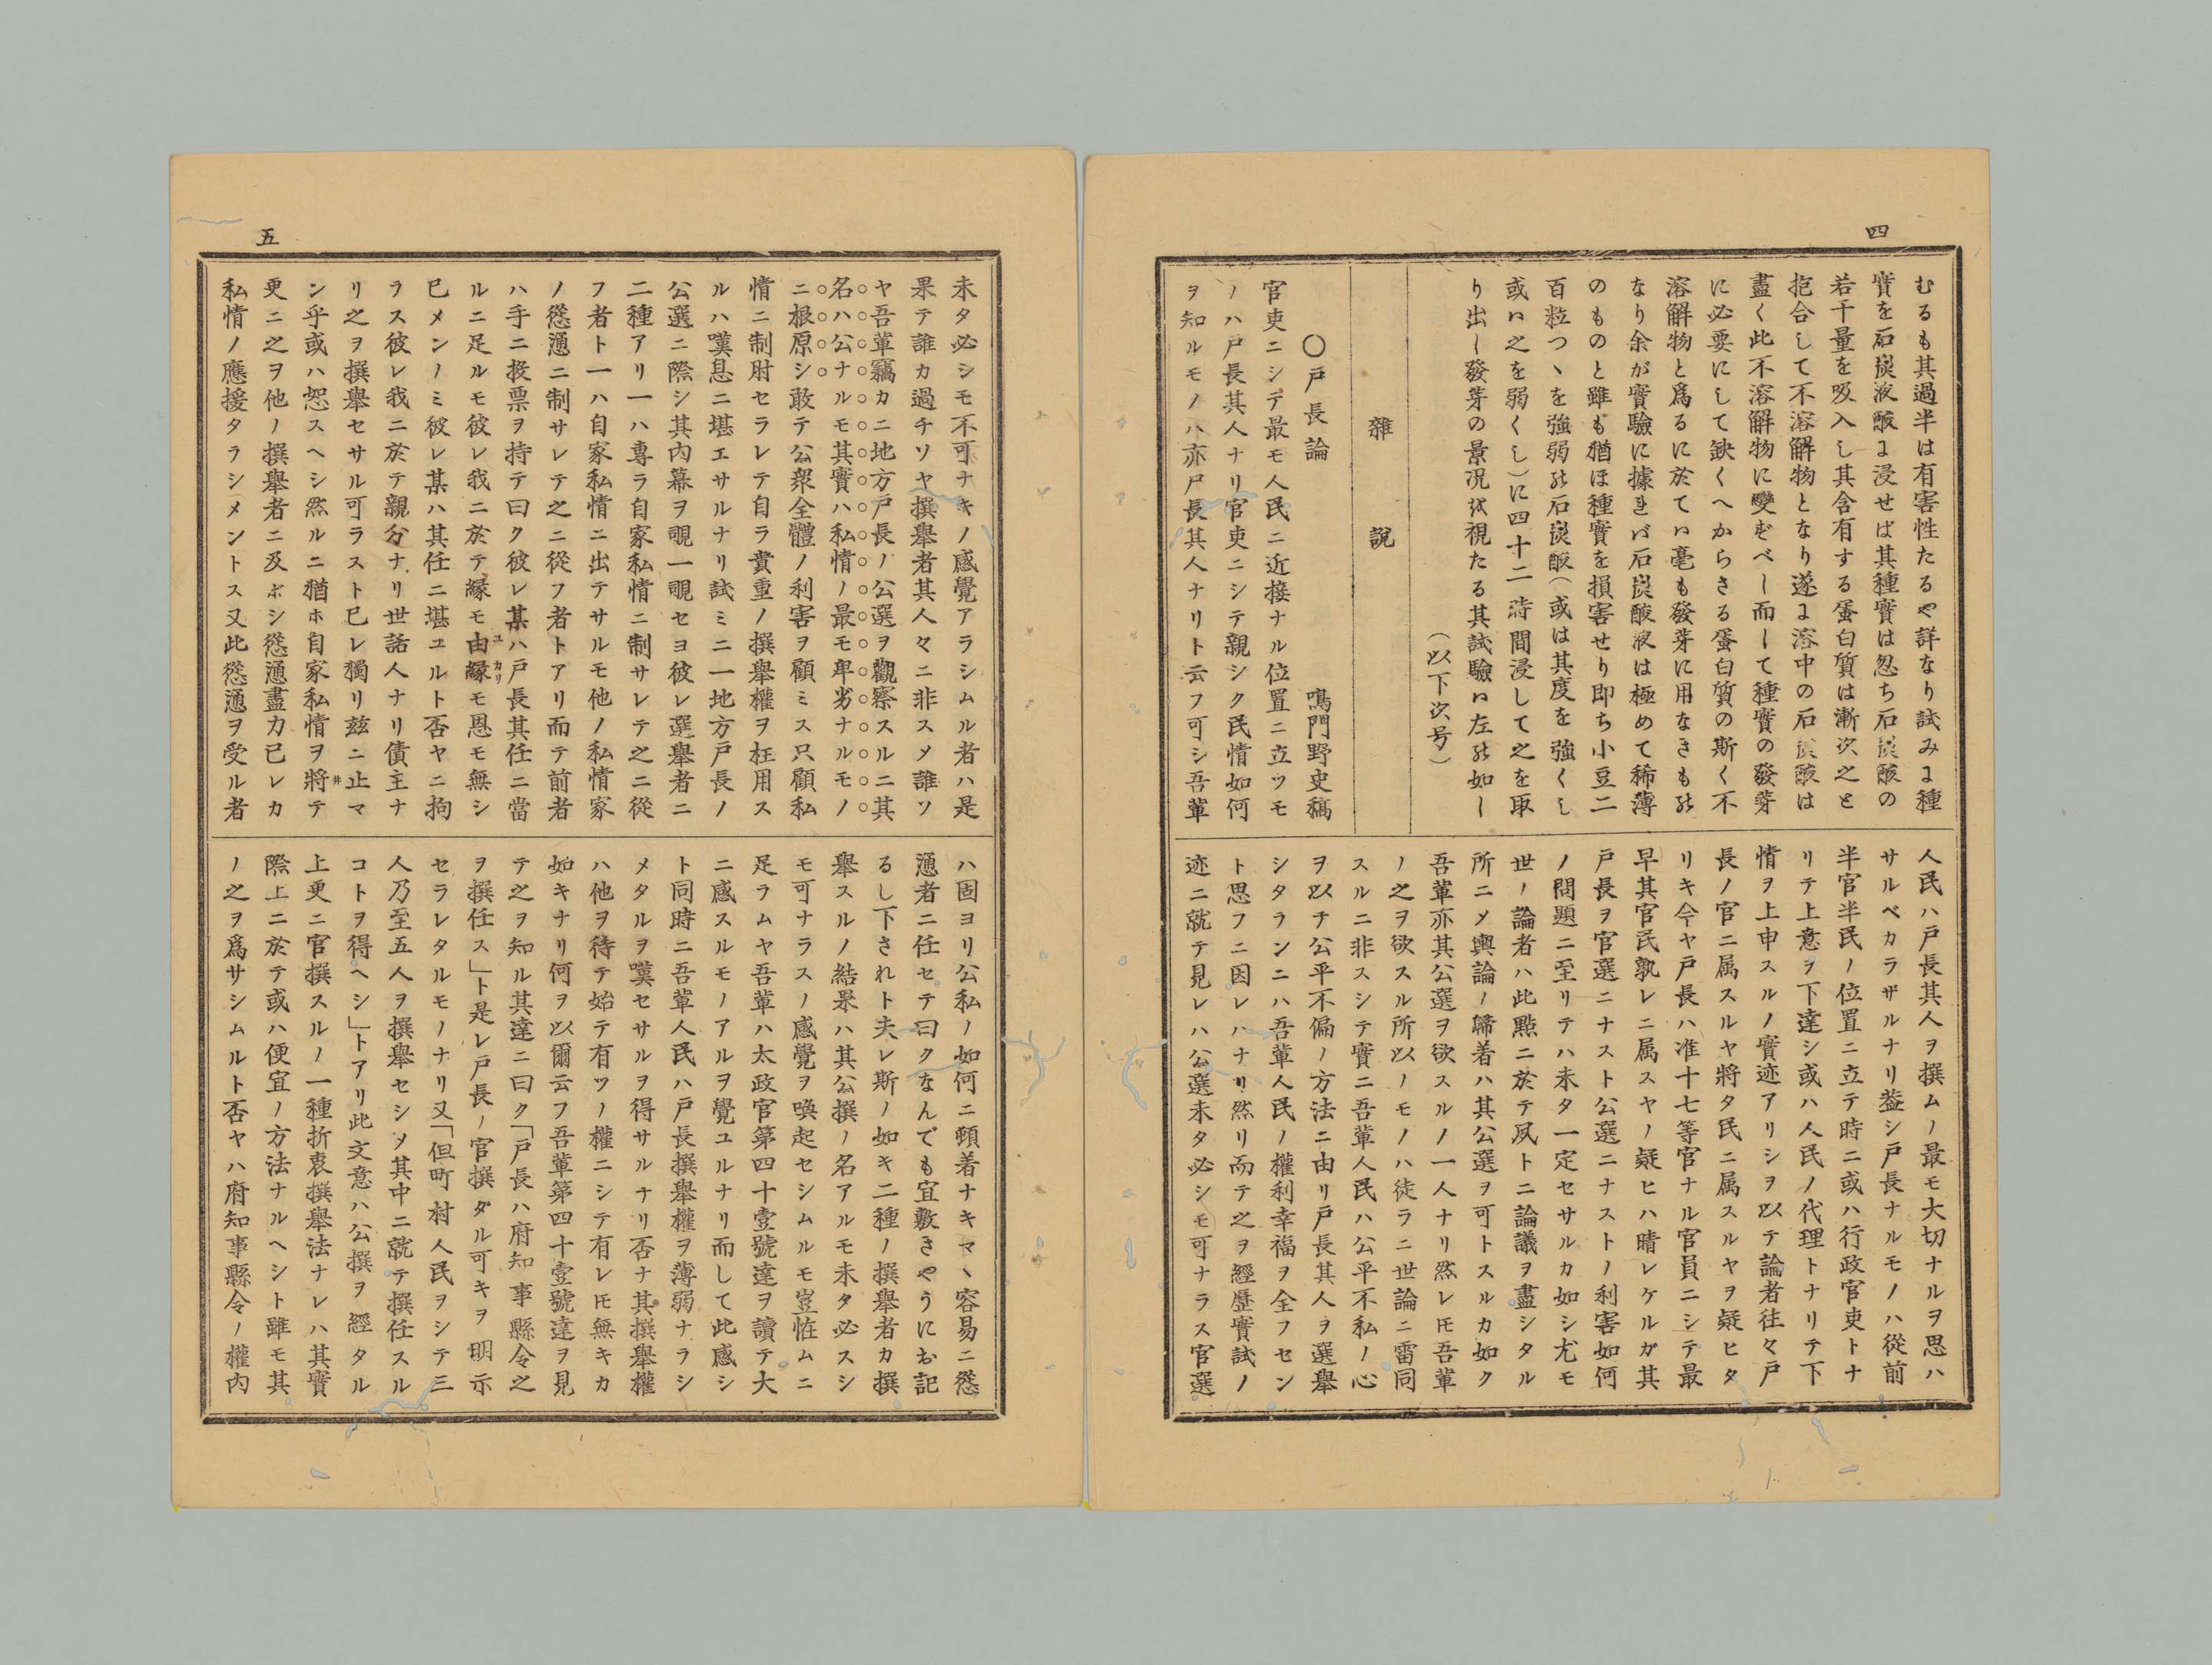 四
むるも其過半は有害性たるや詳なり試みに種
實を石炭液酸に浸せば其種實は忽ち石炭酸の
若干量を吸入し其含有する蛋白質は漸次之と
抱合して不溶解物となり遂に溶中の石炭酸は
盡く此不溶解物に變ずべし而して種實の發芽
に必要にして缺くへからさる蛋白質の斯く不
溶解物と爲るに於てハ毫も發芽に用なきもの
なり余が實驗に據れバ石炭酸液は極めて稀薄
のものと雖も猶ほ種實を損害せり即ち小豆二
百粒つヽを強弱の石炭酸(或は其度を強くし
或ハ之を弱くし)に四十二時間浸して之を取
り出し發芽の景况を視たる其試驗ハ左の如し
(以下次号)
雜説
〇戸長論
鳴門野史稿
官吏ニシテ最モ人民ニ近接ナル位置ニ立ツモ
ノハ戸長其人ナリ官吏ニシテ親シク民情如何
ヲ知ルモノハ亦戸長其人ナリト云フ可シ吾輩
人民ハ戸長其人ヲ撰ムノ最モ大切ナルヲ思ハ
サルベカラザルナリ盖シ戸長ナルモノハ從前
半官半民ノ位置ニ立テ時ニ或ハ行政官吏トナ
リテ上意ヲ下達シ或ハ人民ノ代理トナリテ下
情ヲ上申スルノ實迹アリシヲ以テ論者往々戸
長ノ官ニ属スルヤ將タ民ニ属スルヤヲ疑ヒタ
リキ今ヤ戸長ハ准十七等官ナル官員ニシテ最
早其官民孰レニ属スヤノ疑ヒハ晴レケルガ其
戸長ヲ官選ニナスト公選ニナストノ利害如何
ノ問題ニ至リテハ未タ一定セサルカ如シ尤モ
世ノ論者ハ此點ニ於テ夙トニ論議ヲ盡シタル
所ニメ輿論ノ歸着ハ其公選ヲ可トスルカ如ク
吾輩亦其公選ヲ欲スルノ一人ナリ然レ𪜈吾輩
ノ之ヲ欲スル所以ノモノハ徒ラニ世論ニ雷同
スルニ非スシテ實ニ吾輩人民ハ公平不私ノ心
ヲ以テ公平不偏ノ方法ニ由リ戸長其人ヲ選舉
シタランニハ吾輩人民ノ權利幸福ヲ全フセン
ト思フニ因レハナリ然リ而テ之ヲ經歴實試ノ
迹ニ就テ見レハ公選未タ必シモ可ナラス官選
五
未タ必シモ不可ナキノ感覺アラシムル者ハ是
果テ誰カ過チソヤ撰舉者其人々ニ非スメ誰ソ
ヤ吾輩竊カニ地方戸長ノ公選ヲ觀察スルニ其
名ハ公ナルモ其實ハ私情ノ最モ卑劣ナルモノ
ニ根原シ敢テ公衆全體ノ利害ヲ顧ミス只顧私
情ニ制肘セラレテ自ラ貴重ノ撰舉權ヲ枉用ス
ルハ嘆息ニ堪エサルナリ試ミニ一地方戸長ノ
公選ニ際シ其内幕ヲ覗一覗セヨ彼レ選舉者ニ
二種アリ一ハ専ラ自家私情ニ制サレテ之ニ從
フ者ト一ハ自家私情ニ出テサルモ他ノ私情家
ノ慫慂ニ制サレテ之ニ從フ者トアリ而テ前者
ハ手ニ投票ヲ持テ曰ク彼レ某ハ戸長其任ニ當
ルニ足ルモ彼レ我ニ於テ縁モ由縁モ恩モ無シ
已メンノミ彼レ某ハ其任ニ堪ユルト否ヤニ拘
ラス彼レ我ニ於テ親分ナリ世話人ナリ債主ナ
リ之ヲ撰舉セサル可ラスト已レ獨リ玆ニ止マ
ン乎或ハ恕スヘシ然ルニ猶ホ自家私情ヲ將テ
更ニ之ヲ他ノ撰舉者ニ及ボシ慫通盡力已レカ
私情ノ應援タラシメントス又此慫通ヲ受ル者
ハ固ヨリ公私ノ如何ニ頓着ナキマヽ容易ニ慫
慂者ニ任セテ曰クなんでも宜敷きやうにお記
るし下されト夫レ斯ノ如キ二種ノ撰舉者カ撰
舉スルノ結果ハ其公撰ノ名アルモ未タ必スシ
モ可ナラスノ感覺ヲ喚起セシムルモ豈恠ムニ
足ラムヤ吾輩ハ太政官第四十壹號達ヲ讀テ大
ニ感スルモノアルヲ覺ユルナリ而して此感シ
ト同時ニ吾輩人民ハ戸長撰舉權ヲ薄弱ナラシ
メタルヲ嘆セサルヲ得サルナリ否ナ其撰舉權
ハ他ヲ待テ始テ有ツノ權ニシテ有レ𪜈無キカ
如キナリ何ヲ以爾云フ吾輩第四十壹號達ヲ見
テ之ヲ知ル其達ニ曰ク「戸長ハ府知事縣令之
ヲ撰任ス」ト是レ戸長ノ官撰タル可キヲ明示
セラレタルモノナリ又「但町村人民ヲシテ三
人乃至五人ヲ撰舉セシメ其中ニ就テ撰任スル
コトヲ得ヘシ」トアリ此文意ハ公撰ヲ經タル
上更ニ官撰スルノ一種折衷撰舉法ナレハ其實
際上ニ於テ或ハ便宜ノ方法ナルヘシト雖モ其
ノ之ヲ爲サシムルト否ヤハ府知事縣令ノ權内